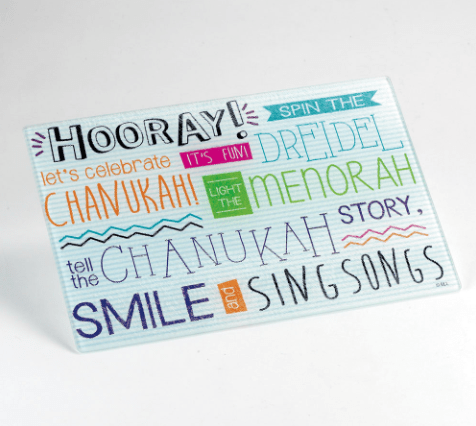 HOORAY! SPIN THE
let's celebrate IT'S FUN! DREIDEL
CHANUKAH! LIGHT THE MENORAH
tell the CHANUKAH STORY,
SMILE and SING SONGS